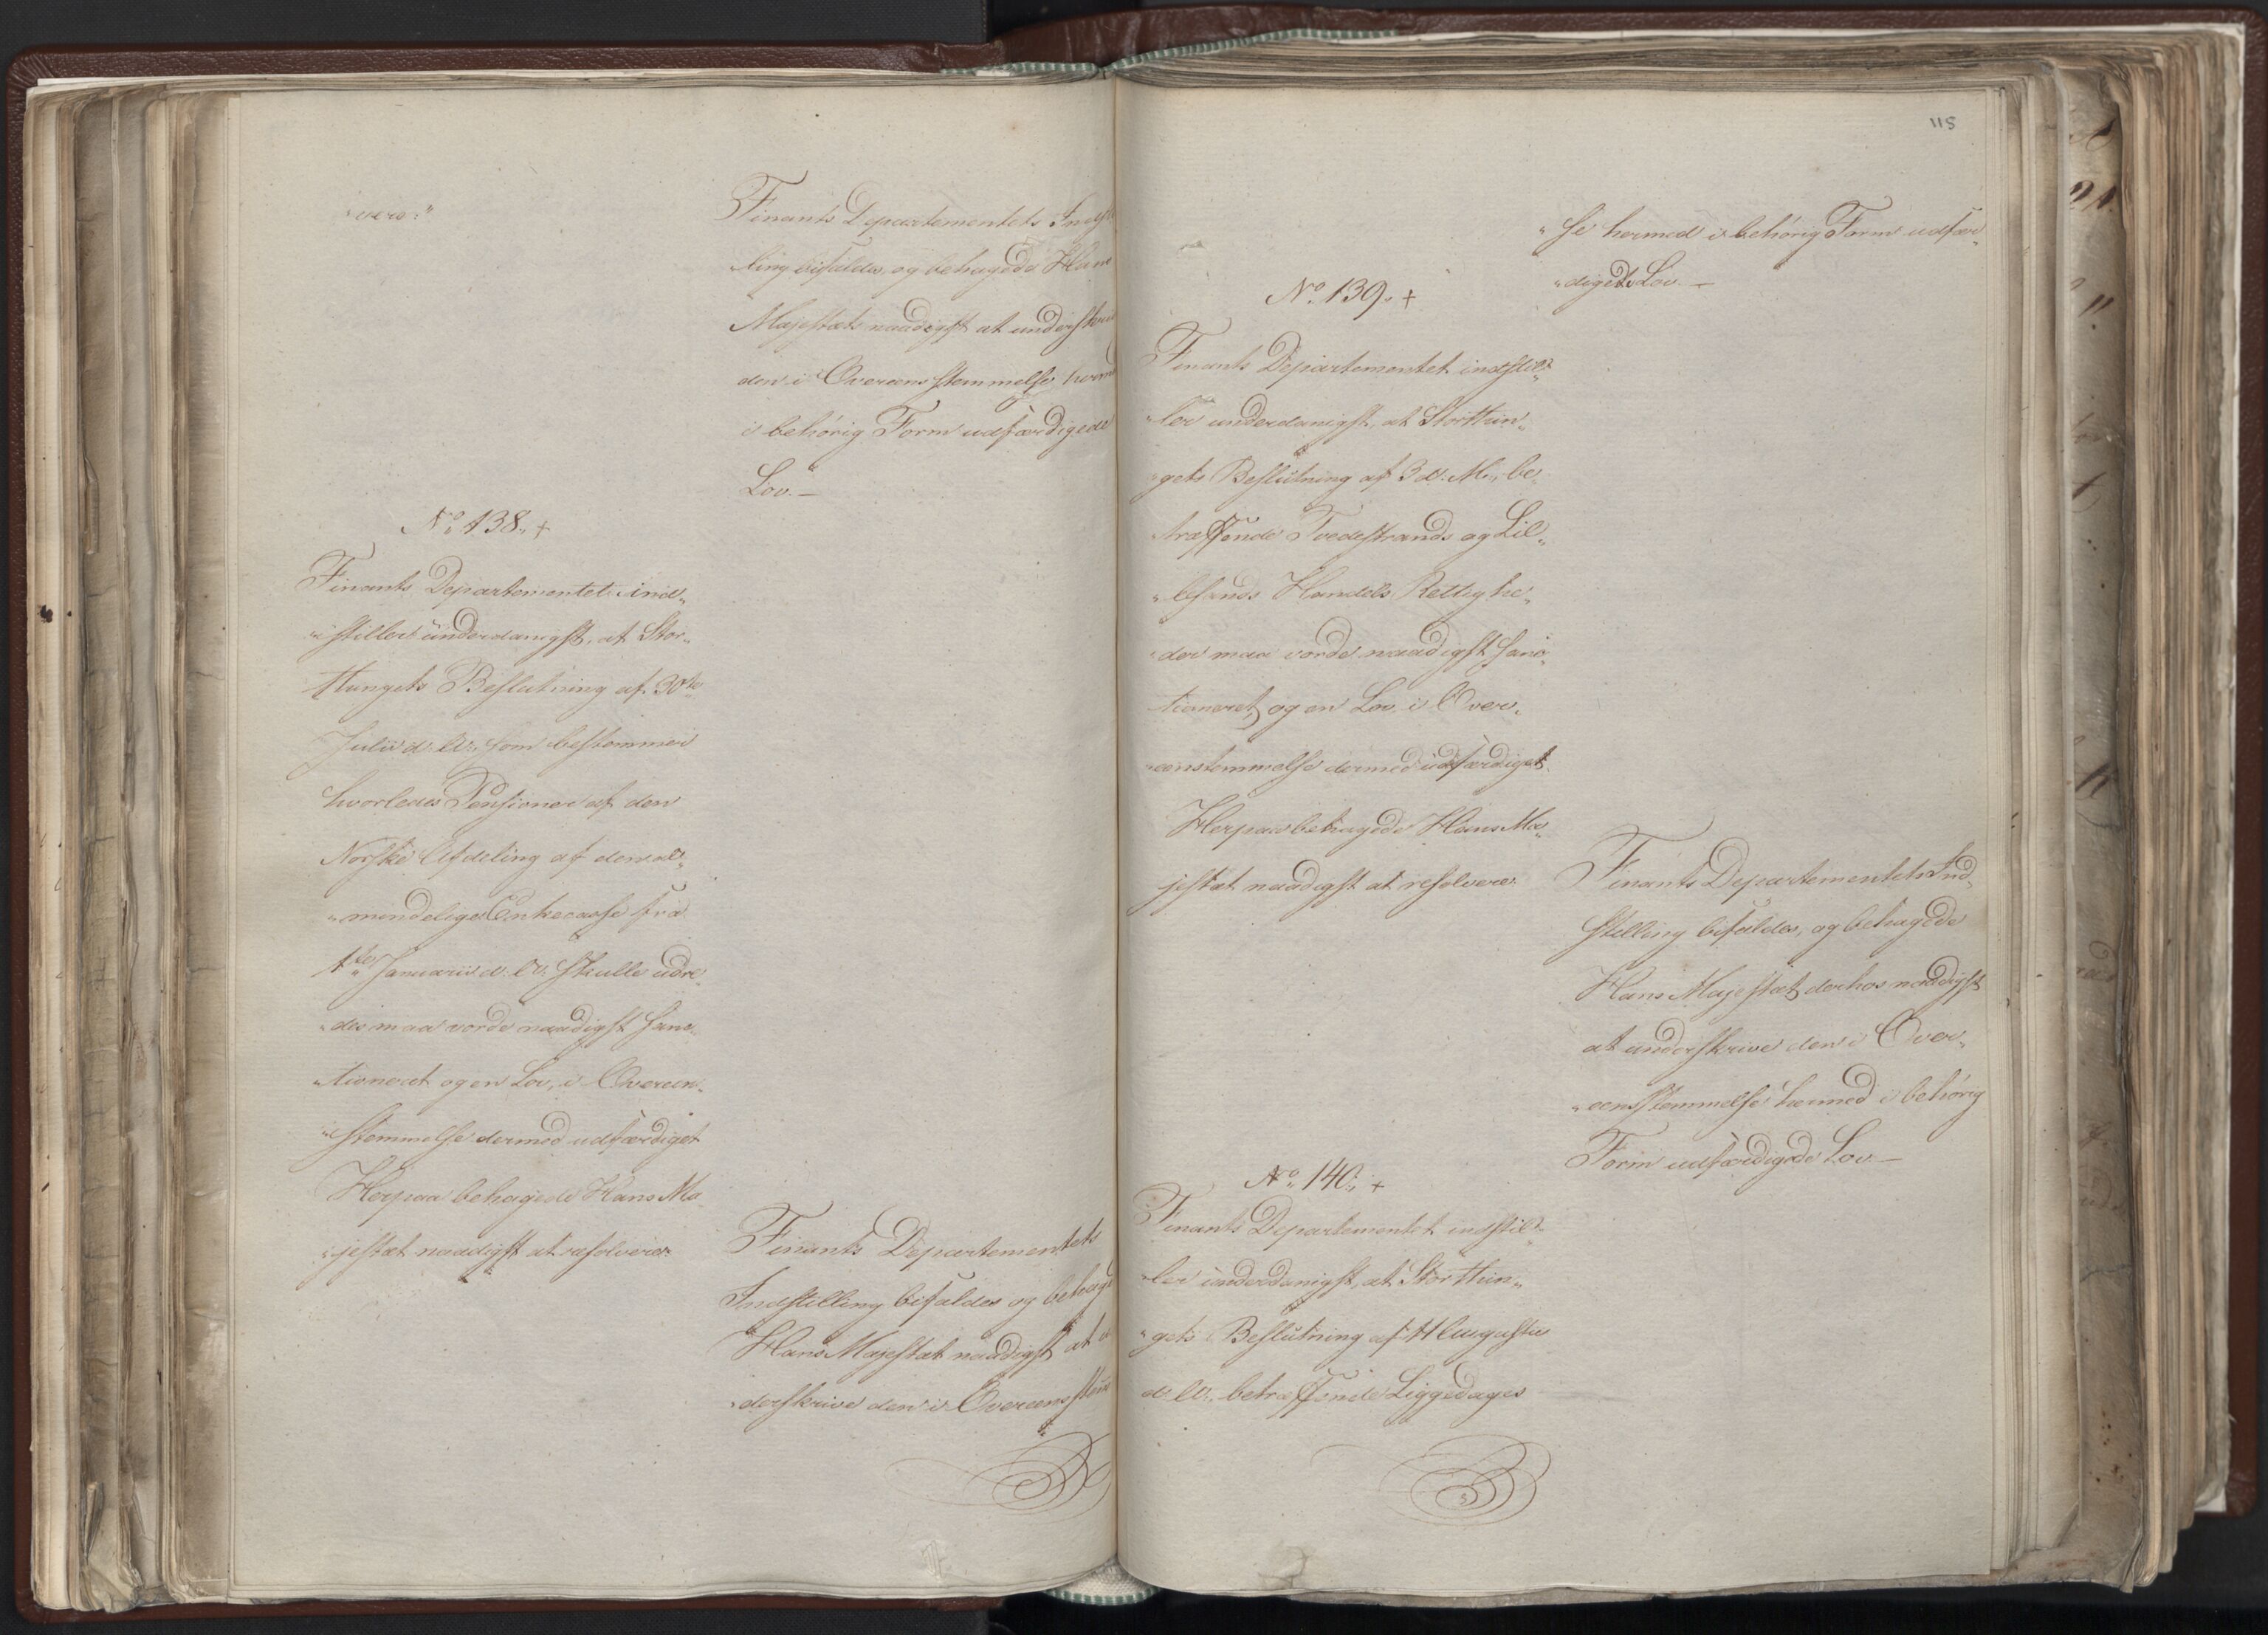 "vere:"
Finants Departementets Indst
ling bifaldes, og behagede Hans
Majestæts naadigst at underskri
den i Overeensstemmelse herm
i behørig Form udfærdigede
Lov.—
No. 138. +
Finants Departementet ind„
„stiller underdanigst, at Stor„
Thingets Beslutning af 30te
Julii d. A., som bestemmer
hvorledes Pensioner af den
Norske Afdeling af den al„
„mindelige Enkecasse fra
1te Januarii d. A. skulle udre„
„des maa vorde naadigst sanc„
„tioneret og en Lov, i Overeen„
„stemmelse dermed udfærdiget
Herpaa behagede Hans Ma„
„jestæt naadigst at resolvere:
Finants Departementets
Indstilling bifaldes og behage
Hans Majestæt naadigst at u
„derskrive den i Overeensstem
115
„se hermed i behørig Form udfær„
„digede Lov.—
No. 139. +
Finants Departementet indstil„
„ler underdanigst, at Storthin„
„gets Beslutning af 3 d. M., be„
„træffende Tvedestrands og Lil„
„lesands Handels Rettighe„
„der maa vorde naadigst sanc„
tioneret, og en Lov i Over„
„eenstemmelse dermed udfærdiget.
Herpaa behagede Hans Ma„
jestæt naadigst at resolvere:
Finants Departementets Ind„
stilling bifaldes, og behagede
Hans Majestæt derhos naadigst
at underskrive den i Over„
„eensstemmelse hermed i behørig
Form udfærdigede Lov.—
No. 140. +
Finants Departementet indstil„
„ler underdanigst, at Storthin„
„gets Beslutning af 4 Augusti
d. A., betræffende Liggedages